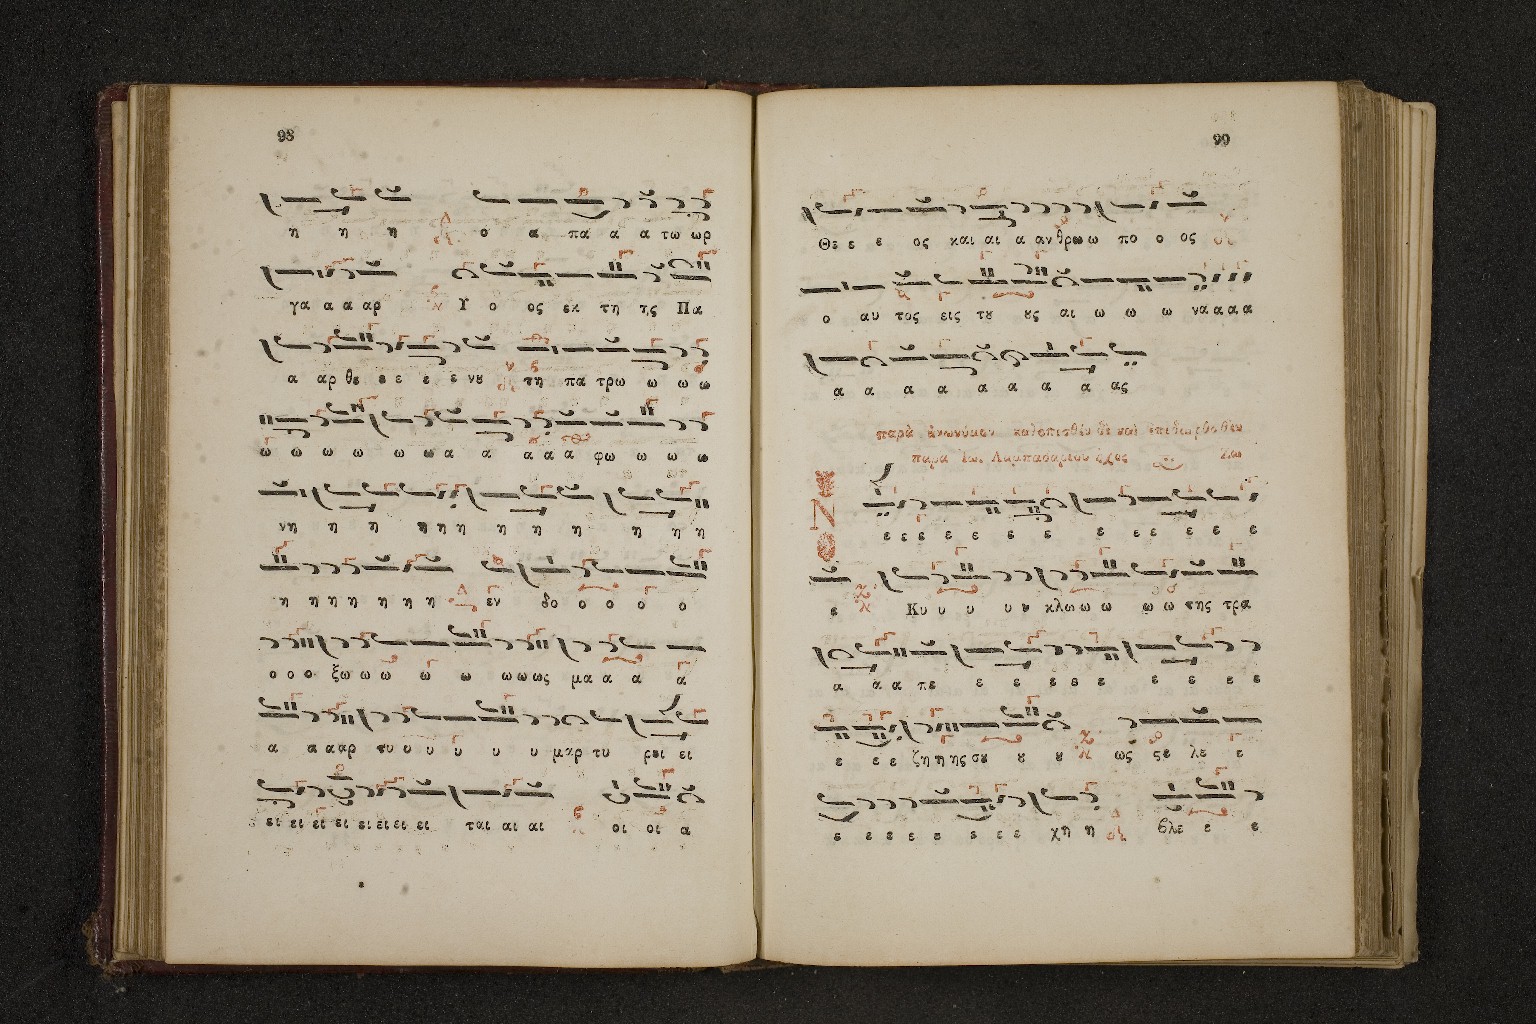 98
η η η ο α πα α α τω ωρ
γα α α αρ Υ ο ος εκ τη ης Πα
α αρ θε ε ε ε ε νου τη πα τρω ω ω ω
ω ω ω ω ω ω α α α α α φω ω ω ω
νη η η η η η η η η η η η
η η η η η η η εν δο ο ο ο ο
ο ο ο ξω ω ω ω ω ω ω ως μα α α α
α α α αρ τυ υ υ υ υ υ μαρ τυ ρει ει
ει ει ει ει ει ει ει ει ται αι αι οι οι α
99
Θε ε ε ος και αι α αν θρω ω πο ο ος
ο αυ τος εις του ους αι ω ω ω να α α α
α α α α α α α α ας
παρὰ ἀνωνύμου καλοπισθὲν δὲ καὶ ἐπιδιορθοθὲν
παρα Ἰω. Λαμπαδαρίου ἦχος Ζω
Ν
ε ε ε ε ε ε ε ε ε ε ε ε ε
ε Κυ υ υ υ υ κλω ω ω ω ω της τρα
α α α πε ε ε ε ε ε ε ε ε ε
ε ε ε ζη η ης σου ου ου ως ςε λε ε
ε ε ε ε ε ε ε ε χη η βλε ε ε